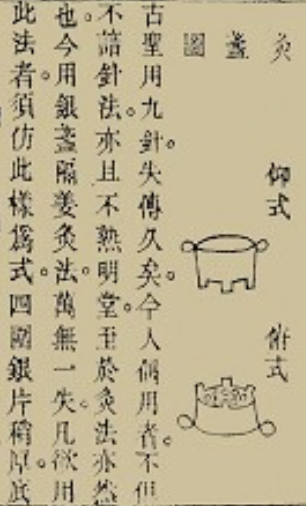 灸盞圖
仰式
俯式
古聖用九針。失傳久矣。今人偶用者。不但
不諳針法。亦且不熟明堂。至於灸法亦然
也。今用銀盞隔姜灸法。萬無一失。凡欲用
此法者。須仿此樣為式。四圍銀片稍厚。底